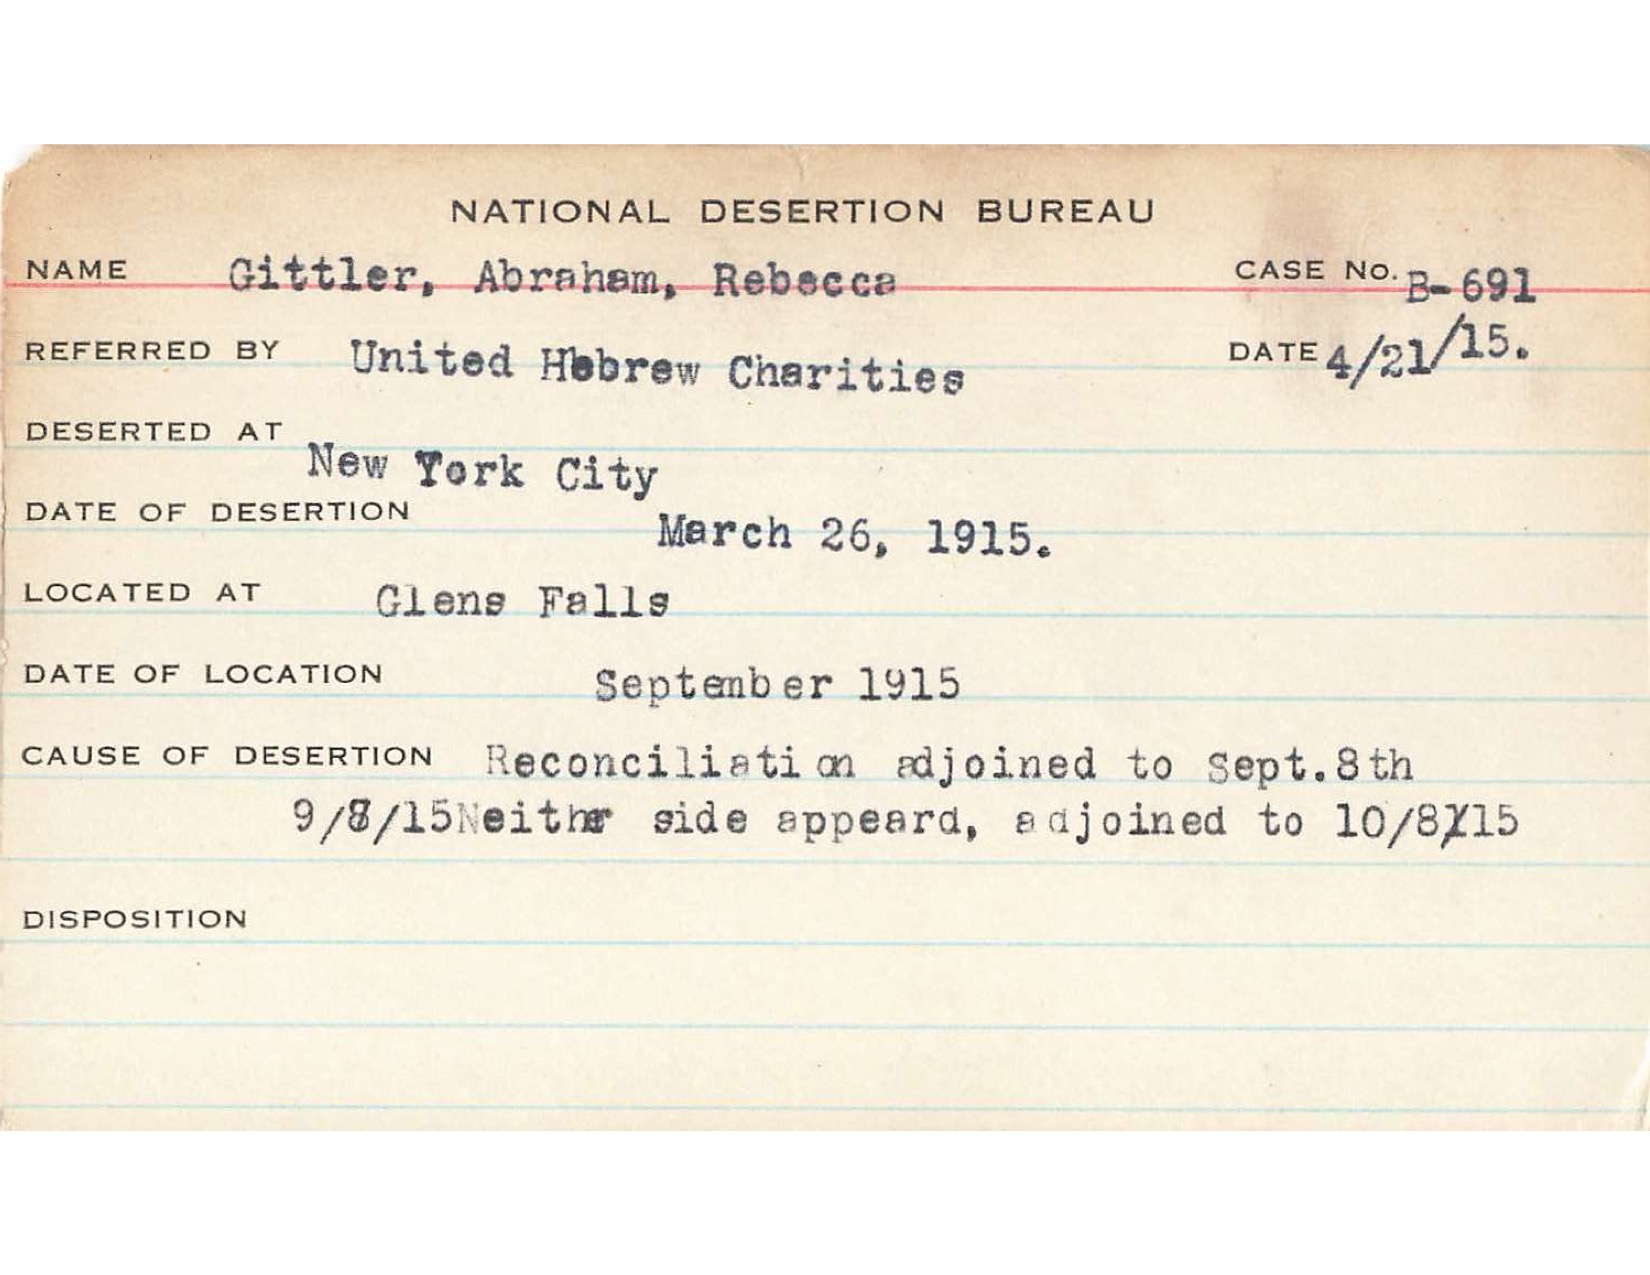 NATIONAL DESERTION BUREAU
NAME Gittler, Abraham, Rebecca CASE No. B-691
REFERRED BY United Hebrew Charities DATE 4/21/15.
DESERTED AT
New York City
DATE OF DESERTION March 26, 1915.
LOCATED AT Glens Falls
DATE OF LOCATION September 1915
CAUSE OF DESERTION Reconciliation adjoined to Sept.8th
9/8/15Neither side appeard, adjoined to 10/8/15
DISPOSITION